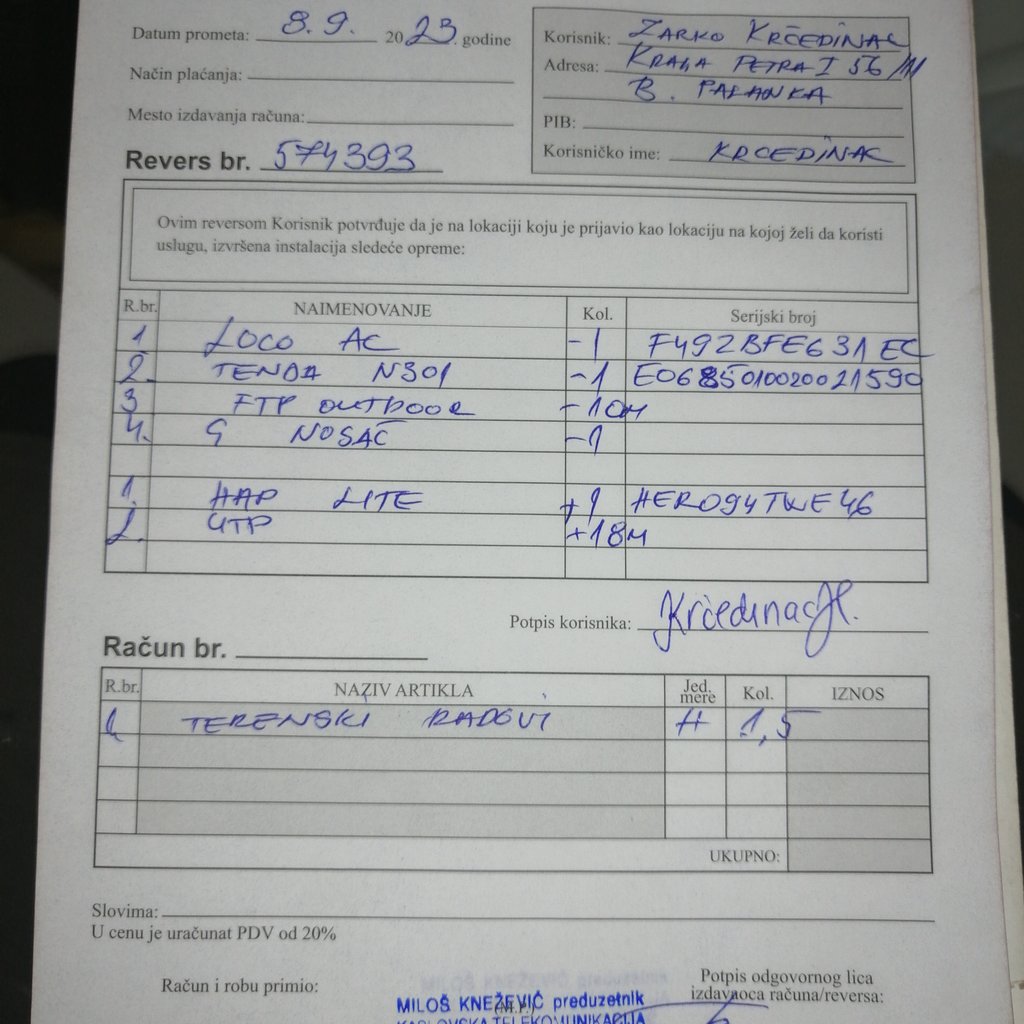 Datum prometa: 8.9. 2023. godine
Način plaćanja:
Mesto izdavanja računa:
Revers br. 574393
Korisnik: ZARKO KRČEDINAC
Adresa: KRAЉA PETRA I 56/11
B. PALANKA
PIB:
Korisničko ime: KRCEDINAC
Ovim reversom Korisnik potvrđuje da je na lokaciji koju je prijavio kao lokaciju na kojoj želi da koristi
uslugu, izvršena instalacija sledeće opreme:
R.br. NAIMENOVANJE Kol. Serijski broj
1 LOCO AC -1 F492BFE631EC
2. TENDA N301 -1 E0685010020021590
3 FTP OUTDOOR -10M
4. G NOSAČ -1
1. HAP LITE +1 HERO94TWE46
2. UTP +18M
Potpis korisnika: Krčedinac
Račun br.
R.br. NAZIV ARTIKLA Jed. mere Kol. IZNOS
1. TERENSKI RADOVI H 1,5
UKUPNO:
Slovima:
U cenu je uračunat PDV od 20%
Račun i robu primio:
Potpis odgovornog lica
izdavaoca računa/reversa:
MILOŠ KNEŽEVIĆ preduzetnik
(M.P.)
KARLOVSKA TELEKOMUNIKACIJA